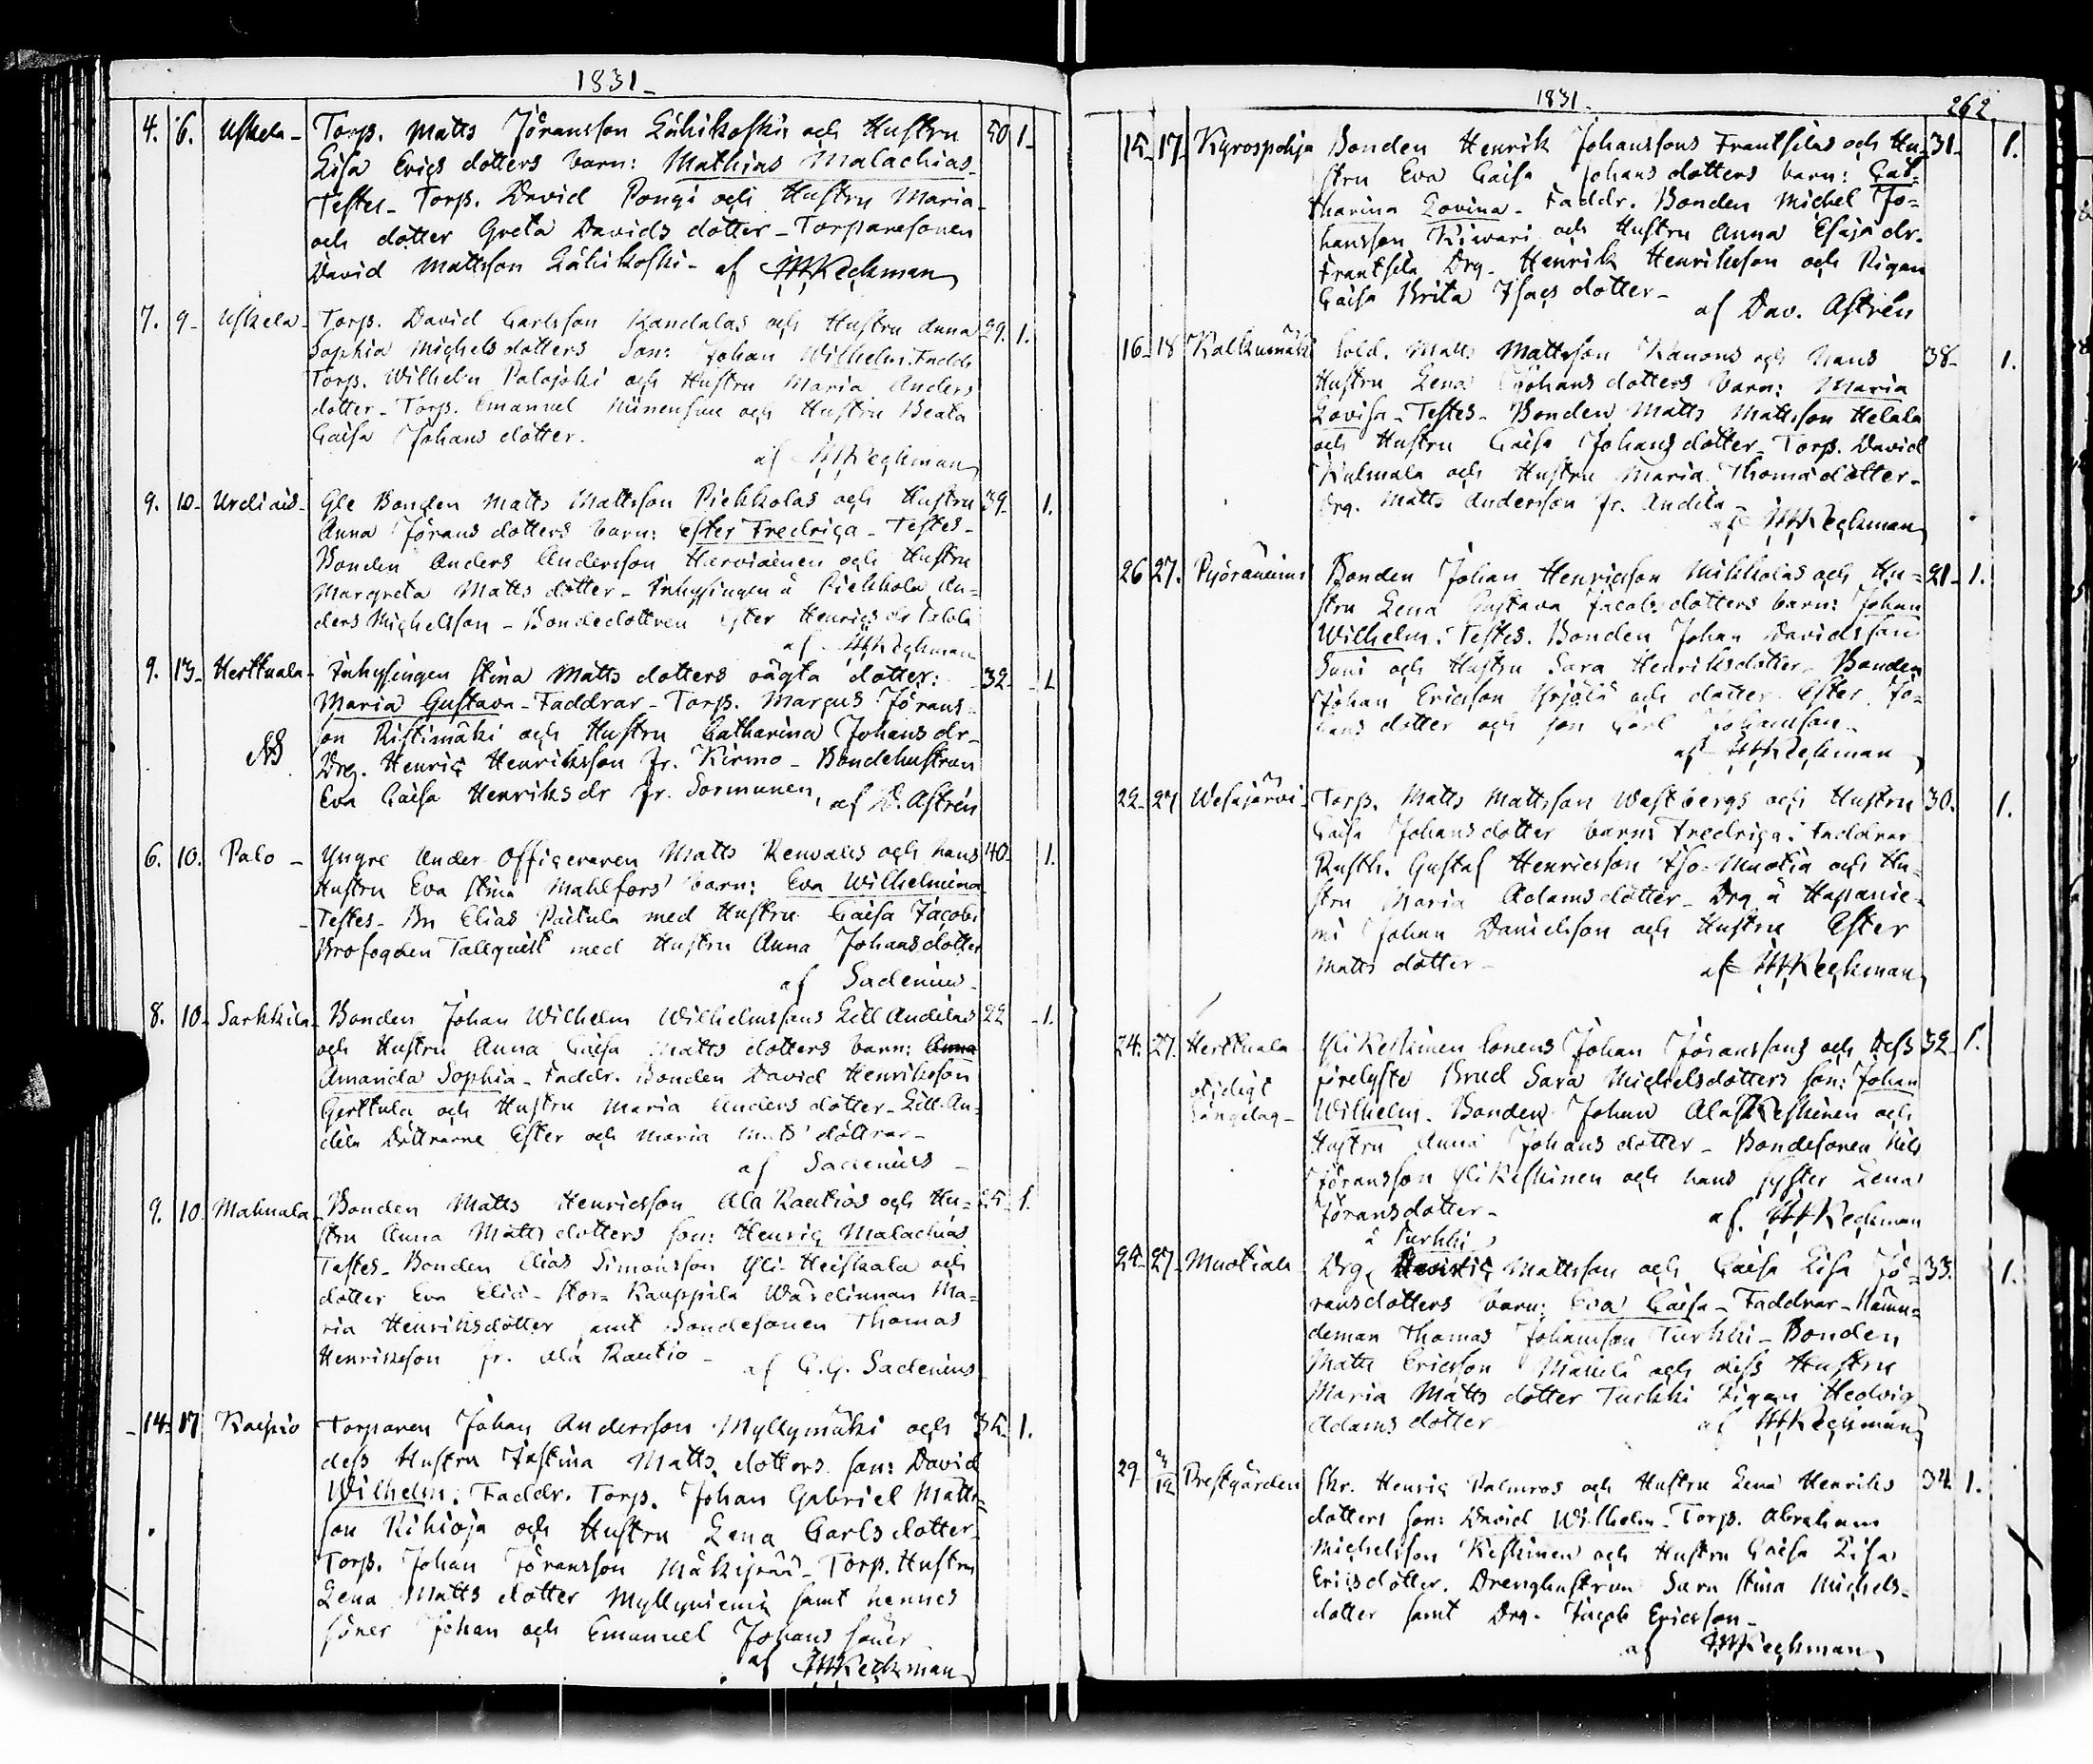 1831
4. 6. Uskela - Torp. Matts Jöransson Lähikoskis och Hustru 50 1
Lisa Erics dotters barn: Mathias Malachias.
Testes - Torp. David Pongi och Hustru Maria
och dotter Greta Davids dotter - Torparesonen
David Mattsson Lähikoski - af HReckman
7. 9 Uskela Torp. David Carlsson Kandalas och Hustru Anna 29. 1.
Sophia Michels dotters Son: Johan Wilhelm. Faddr
Torp. Wilhelm Palojoki och Hustru Maria Anders
dotter - Torp. Emanuel och Hustru Beata
Caisa Johans dotter.
af HReckman
9. 10 Urdiais Gle Bonden Matts Mattsson Piekkolas och Hustru 39 1.
Anna Jörans dotters barn: Ester Fredrica - Testes -
Bonden Anders Andersson Harviainen och Hustru
Margreta Matts dotter - Inhysingen å Piekkola An=
ders Michelsson - Bondedottren Ester Henrics dr
af HReckman
9. 13 Herttuala Inhysingen Stina Matts dotters oägta dotter: 32 1
Maria Gustava - Faddrar - Torp. Marcus Jörans
son Ristimäki och Hustru Catharina Johans dr
Drg. Henric Henriksson fr. Kirmo - Bondehustrun
Eva Caisa Henriks dr fr. Sormunen, af D. Astrén
6. 10. Palo - Yngre Under Officeraren Matts Renvalls och hans 40 1.
Hustru Eva Stina Mahlfors' barn: Eva Wilhelmina
Testes - Bn Elias Paitula med Hustru Caisa Jacobs
Brofogden Tallquist med Hustru Anna Johans dotter
af Sadenius
8. 10 Sarkkila Bonden Johan Wilhelm Wilhelmssons Lill Andilas 22 1.
och Hustru Anna Caisa Matts dotters barn: Anna
Amanda Sophia - Faddr. Bonden David Henriksson
Gerttula och Hustru Maria Anders dotter - Lill-An=
dila Döttrarne Ester och Maria Mats' döttrar -
af Sadenius
9. 10 Mahnala Bonden Matts Henricsson Ala Rautios och Hu= 25 1.
stru Anna Matts dotters son: Henric Malachias
Testes - Bonden Elias Simonsson Yli-Heiskala och
dotter Eva Elia - Stor= Kauppila Wärdinnan Ma=
ria Henriksdotter samt Bondesonen Thomas
Henriksson fr. Ala Rautio - af C. G. Sadenius
14 17 Kaipio Torparen Johan Andersson Myllymäki och 35 1.
dess Hustru Justina Matts dotters son: David
Wilhelm. Faddr. Torp. Johan Gabriel Matts
son Rihioja och Hustru Lena Carls dotter
Torp. Johan Jöransson Mäkipää - Torp. Hustru
Lena Matts dotter Myllyniemi samt hennes
söner Johan och Emanuel Johans söner
af HReckman
1831 262
15 17 Kyrospohja Bonden Henrik Johanssons Frantsilas och Hu 31 1.
stru Eva Caisa Johans dotters barn: Cat=
harina Lovina - Faddr. Bonden Michel Jo=
hansson Kiwari och Hustru Anna Esajä dr.
Frantsila Drg. Henrik Henriksson och Pigan
Caisa Brita Isacs dotter -
af Dav. Astrén
16 18 Kalkumäki Sold. Matts Mattsson Kanons och hans 38 1.
Hustru Lena Johans dotters barn: Maria
Lovisa - Testes - Bonden Matts Mattsson Helala
och Hustru Caisa Johans dotter - Torp. David
Kulmala och Hustru Maria Thomä dotter -
Drg. Matts Andersson fr. Andila -
af HReckman
26 27. Pyöräniemi Bonden Johan Henricson Mikkolas och Hu= 21 1.
stru Lena Gustava Jacobs dotters barn: Johan
Wilhelm. Testes. Bonden Johan Davidsson
Suni och Hustru Sara Henriksdotter - Bonden
Johan Ericsson Yrjölä och dotter Ester Jo=
hans dotter och son Carl Johansson
af HReckman
22 27 Wesajärvi Torp. Matts Mattsson Wastbergs och Hustru 30. 1.
Caisa Johans dotter barn: Fredrica. Faddrar
Rusth. Gustaf Henricsson Iso-Muotia och Hu=
stru Maria Adams dotter - Drg å Hapanie=
mi Johan Danielsson och Hustru Ester
Matts dotter - af HReckman
24. 27. Herttuala Yli Keskinen sonens Johan Jöranssons och dess 32 1.
otidigt
sängelag -
förelofte Brud Sara Michelsdotters son: Johan
Wilhelm. Bonden Johan Ala Keskinen och
Hustru Anna Johans dotter - Bondesonen Nils
Jöransson Yli Keskinen och hans syster Lena
Jöransdotter - af. HReckman
å Turkki
25 27 Muotiala Drg. Henric Mattsson och Caisa Lisa Jö= 33. 1.
ransdotters barn: Eva Caisa - Faddrar - Nämn=
deman Thomas Johansson Turkki - Bonden
Matts Ericsson Mäkelä och dess Hustru
Maria Matts dotter Turkki Pigan Hedvig
Adams dotter af HReckman
29 4/12 Prestgården Skr. Henric Palmros och Hustru Lena Henriks 34 1.
dotters son: David Wilhelm - Torp. Abraham
Michelsson Keskinen och Hustru Caisa Lisa
Ericsdotter. Drenghustrun Sara Stina Michels=
dotter samt Drg. Jacob Ericsson -
af HReckman